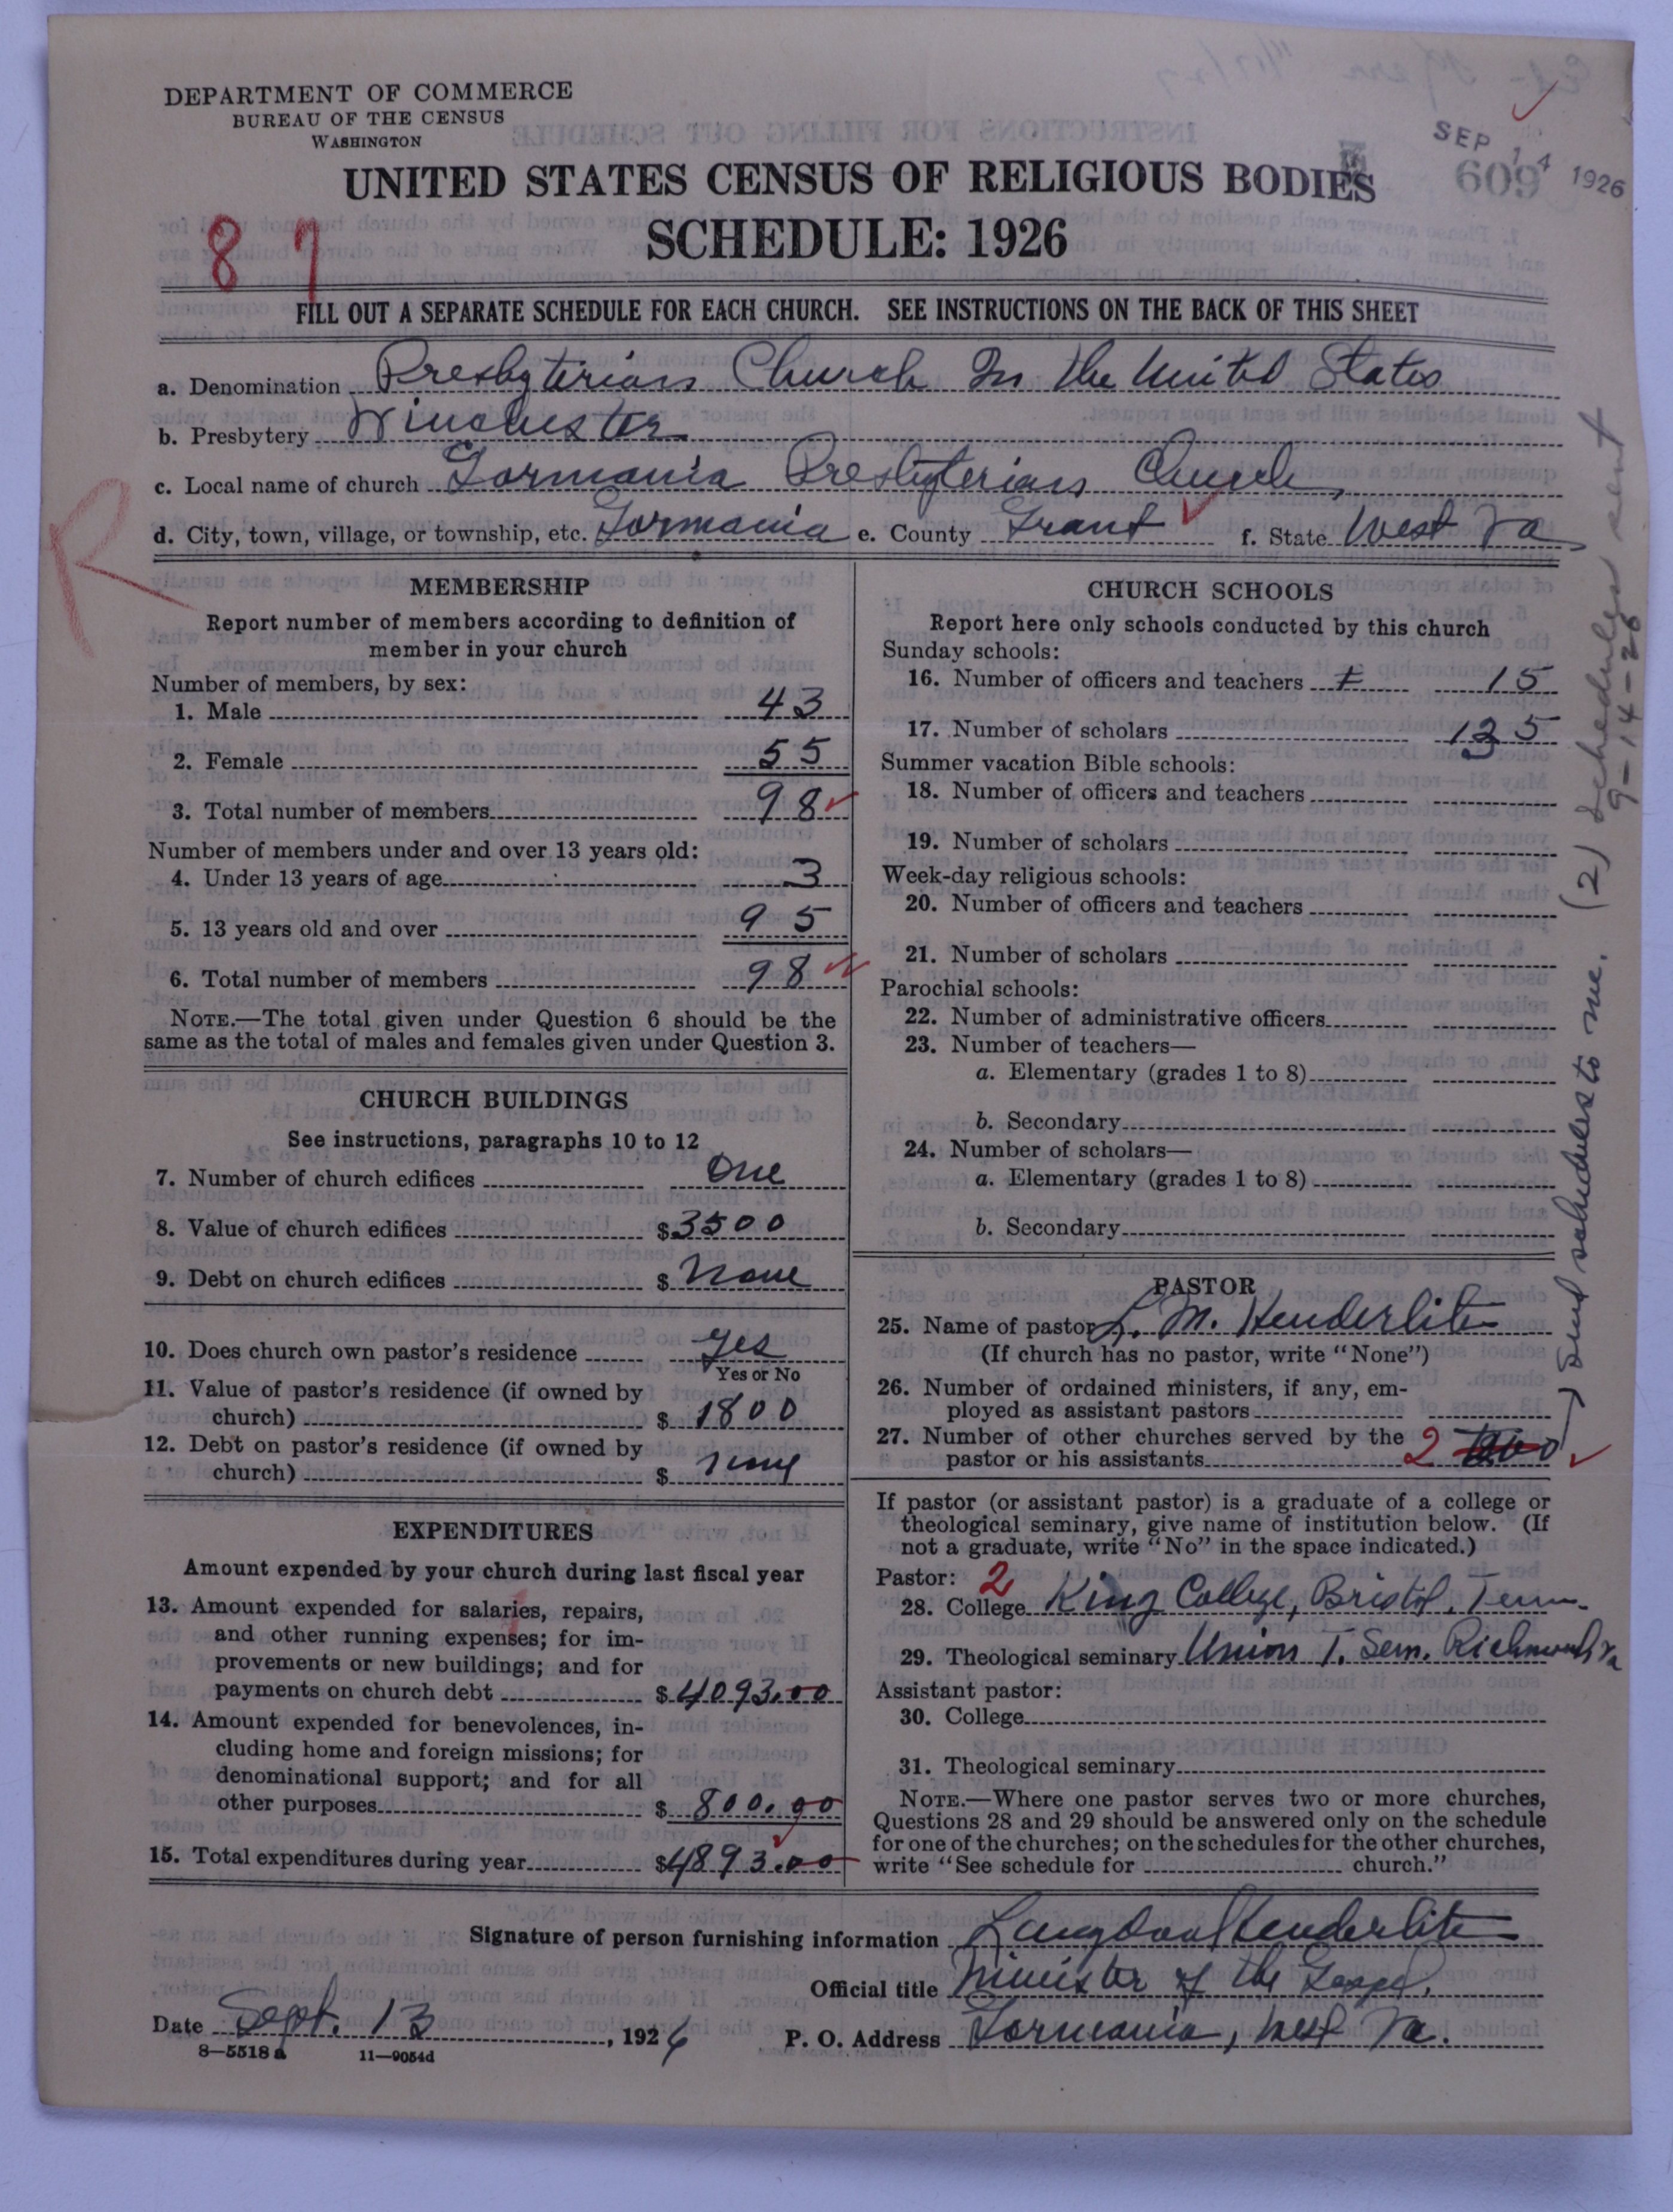 DEPARTMENT OF COMMERCE
BUREAU OF THE CENSUS
WASHINGTON
SEP 14 1926
609
UNITED STATES CENSUS OF RELIGIOUS BODIES
SCHEDULE: 1926
8 7
FILL OUT A SEPARATE SCHEDULE FOR EACH CHURCH. SEE INSTRUCTIONS ON THE BACK OF THIS SHEET
a. Denomination Presbyterian Church In the United States
b. Presbytery Winchester
c. Local name of church Gormania Presbyterian Church,
d. City, town, village, or township, etc. Gormania e. County Grant f. State West Va
R
MEMBERSHIP
Report number of members according to definition of
member in your church
Number of members, by sex:
1. Male 43
2. Female 55
3. Total number of members 98
Number of members under and over 13 years old:
4. Under 13 years of age 3
5. 13 years old and over 95
6. Total number of members 98
NOTE.—The total given under Question 6 should be the
same as the total of males and females given under Question 3.
CHURCH BUILDINGS
See instructions, paragraphs 10 to 12
7. Number of church edifices One
8. Value of church edifices $3500
9. Debt on church edifices $ None
10. Does church own pastor's residence Yes
Yes or No
11. Value of pastor's residence (if owned by
church) $ 1800
12. Debt on pastor's residence (if owned by
church) $ none
EXPENDITURES
Amount expended by your church during last fiscal year
13. Amount expended for salaries, repairs,
and other running expenses; for im-
provements or new buildings; and for
payments on church debt $4093.00
14. Amount expended for benevolences, in-
cluding home and foreign missions; for
denominational support; and for all
other purposes $ 800.00
15. Total expenditures during year $4893.00
CHURCH SCHOOLS
Report here only schools conducted by this church
Sunday schools:
16. Number of officers and teachers 15
17. Number of scholars 135
Summer vacation Bible schools:
18. Number of officers and teachers
19. Number of scholars
Week-day religious schools:
20. Number of officers and teachers
21. Number of scholars
Parochial schools:
22. Number of administrative officers
23. Number of teachers—
a. Elementary (grades 1 to 8)
b. Secondary
24. Number of scholars—
a. Elementary (grades 1 to 8)
b. Secondary
PASTOR
25. Name of pastor L. M. Henderlite
(If church has no pastor, write "None")
26. Number of ordained ministers, if any, em-
ployed as assistant pastors
27. Number of other churches served by the
pastor or his assistants 2
If pastor (or assistant pastor) is a graduate of a college or
theological seminary, give name of institution below. (If
not a graduate, write "No" in the space indicated.)
Pastor: 2
28. College King College, Bristol, Tenn.
29. Theological seminary Union T. Sem. Richmond Va
Assistant pastor:
30. College
31. Theological seminary
NOTE.—Where one pastor serves two or more churches,
Questions 28 and 29 should be answered only on the schedule
for one of the churches; on the schedules for the other churches,
write "See schedule for church."
Send schedules to me.
(2) schedules sent
9-14-26
Signature of person furnishing information Langdon Henderlite
Official title Minister of the Gospel.
Date Sept. 13, 1926 P. O. Address Gormania, West Va.
8—5518a 11—9054d